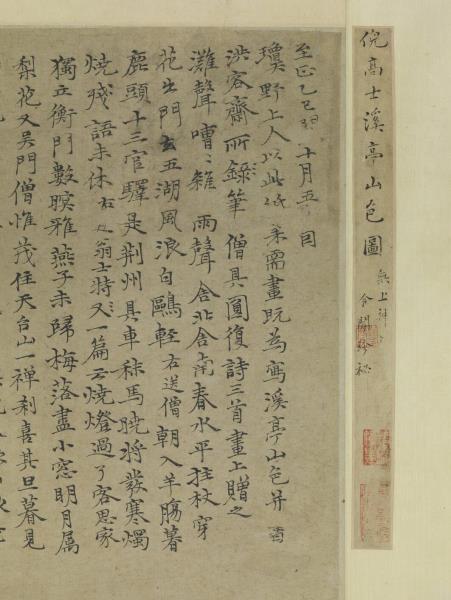 倪高士溪亭山色圖
無上神
令閟珍祕
至正乙巳 十月五日
瓊野上人以此紙來需畫既為寫溪亭山色并
洪容齋所錄筆僧具圓復詩三首畫上贈之
灘聲嘈嘈雜雨聲舍北舍南春水平拄杖穿
花出門去五湖風浪白鷗輕右送僧朝入羊腸暮
鹿頭十三官驛是荊州具車秣馬曉將發寒燭
燒殘語未休右 翁士特又一篇云燒燈過了客思家
獨立衡門數暝鴉燕子未歸梅落盡小窓明月屬
梨花又吳門僧惟茂住天台山一禪刹喜其旦暮見